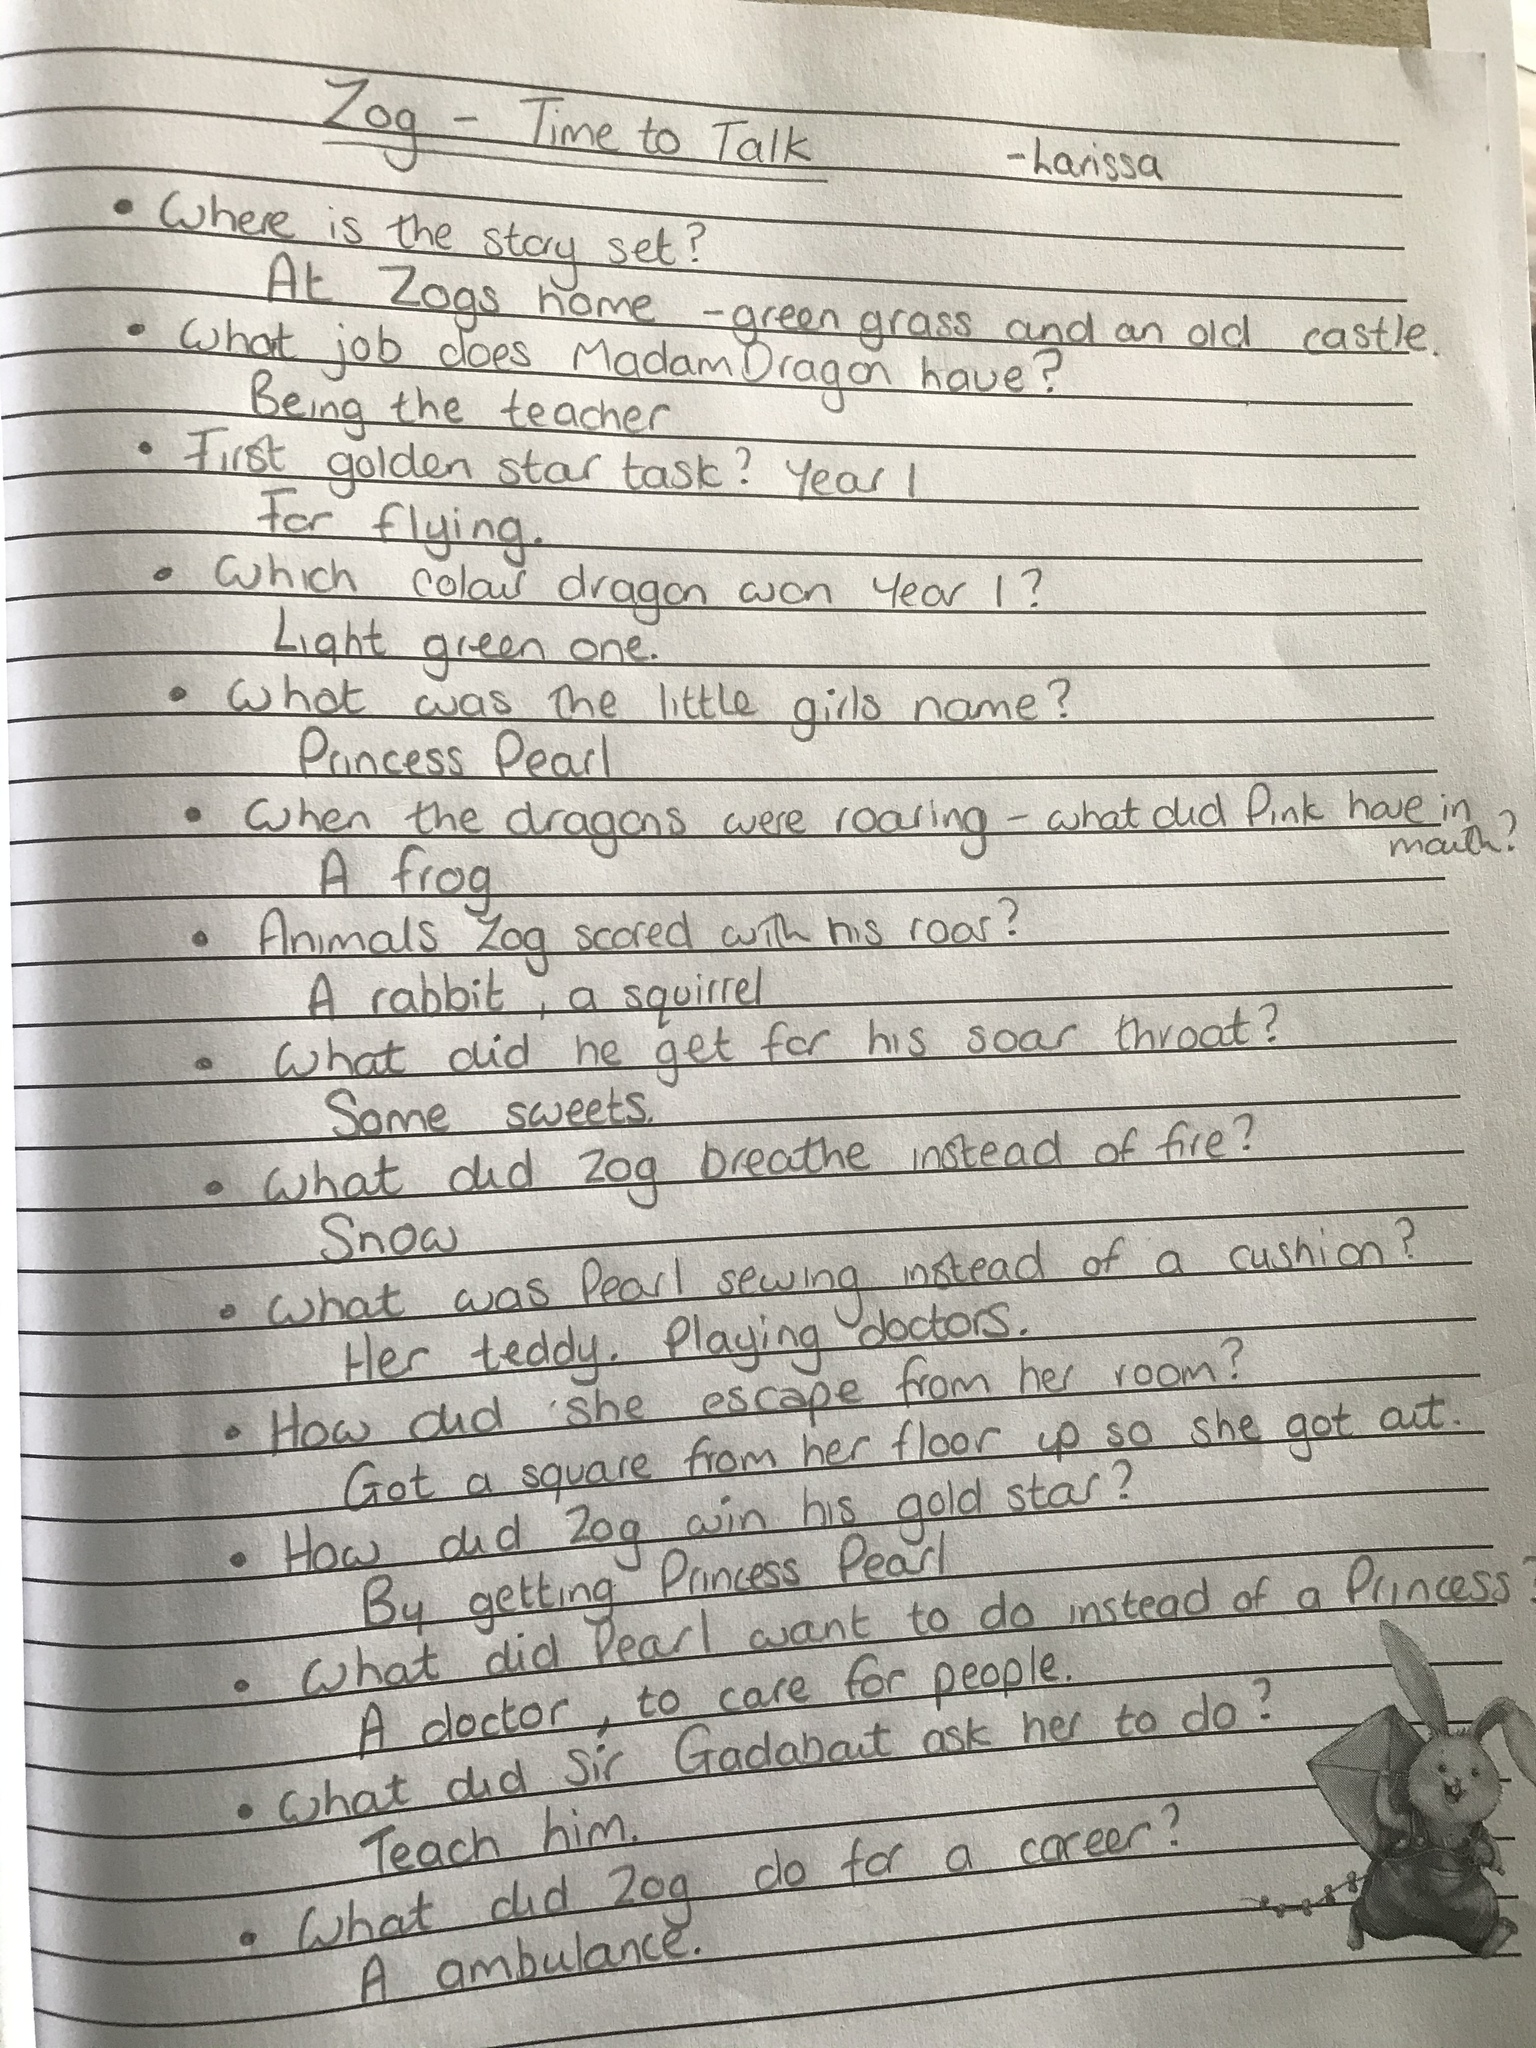 Zog - Time to Talk
-Larissa
• Where is the story set?
At Zogs home - green grass and an old castle.
• What job does Madam Dragon have?
Being the teacher
• First golden star task? Year 1
For flying.
• Which colour dragon won Year 1?
Light green one.
• What was the little girls name?
Princess Pearl
• When the dragons were roaring - what did Pink have in
mouth?
A frog
• Animals Zog scored with his roar?
A rabbit, a squirrel
• What did he get for his soar throat?
Some sweets.
• What did Zog breathe instead of fire?
Snow
• What was Pearl sewing instead of a cushion?
Her teddy. Playing doctors.
• How did she escape from her room?
Got a square from her floor up so she got out.
• How did Zog win his gold star?
By getting Princess Pearl
• What did Pearl want to do instead of a Princess?
A doctor, to care for people.
• What did Sir Gadabout ask her to do?
Teach him.
• What did Zog do for a career?
A ambulance.